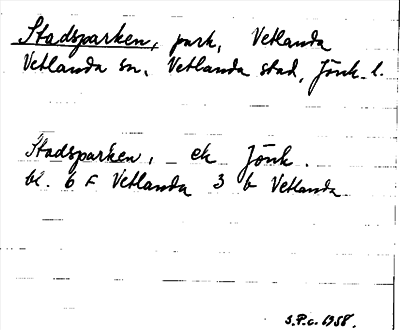 Stadsparken, park, Vetlanda
Vetlanda sn, Vetlanda stad, Jönk. l.
Stadsparken, ek Jönk.
bl. 6 F Vetlanda 3 b Vetlanda
S.P.c. 1958.